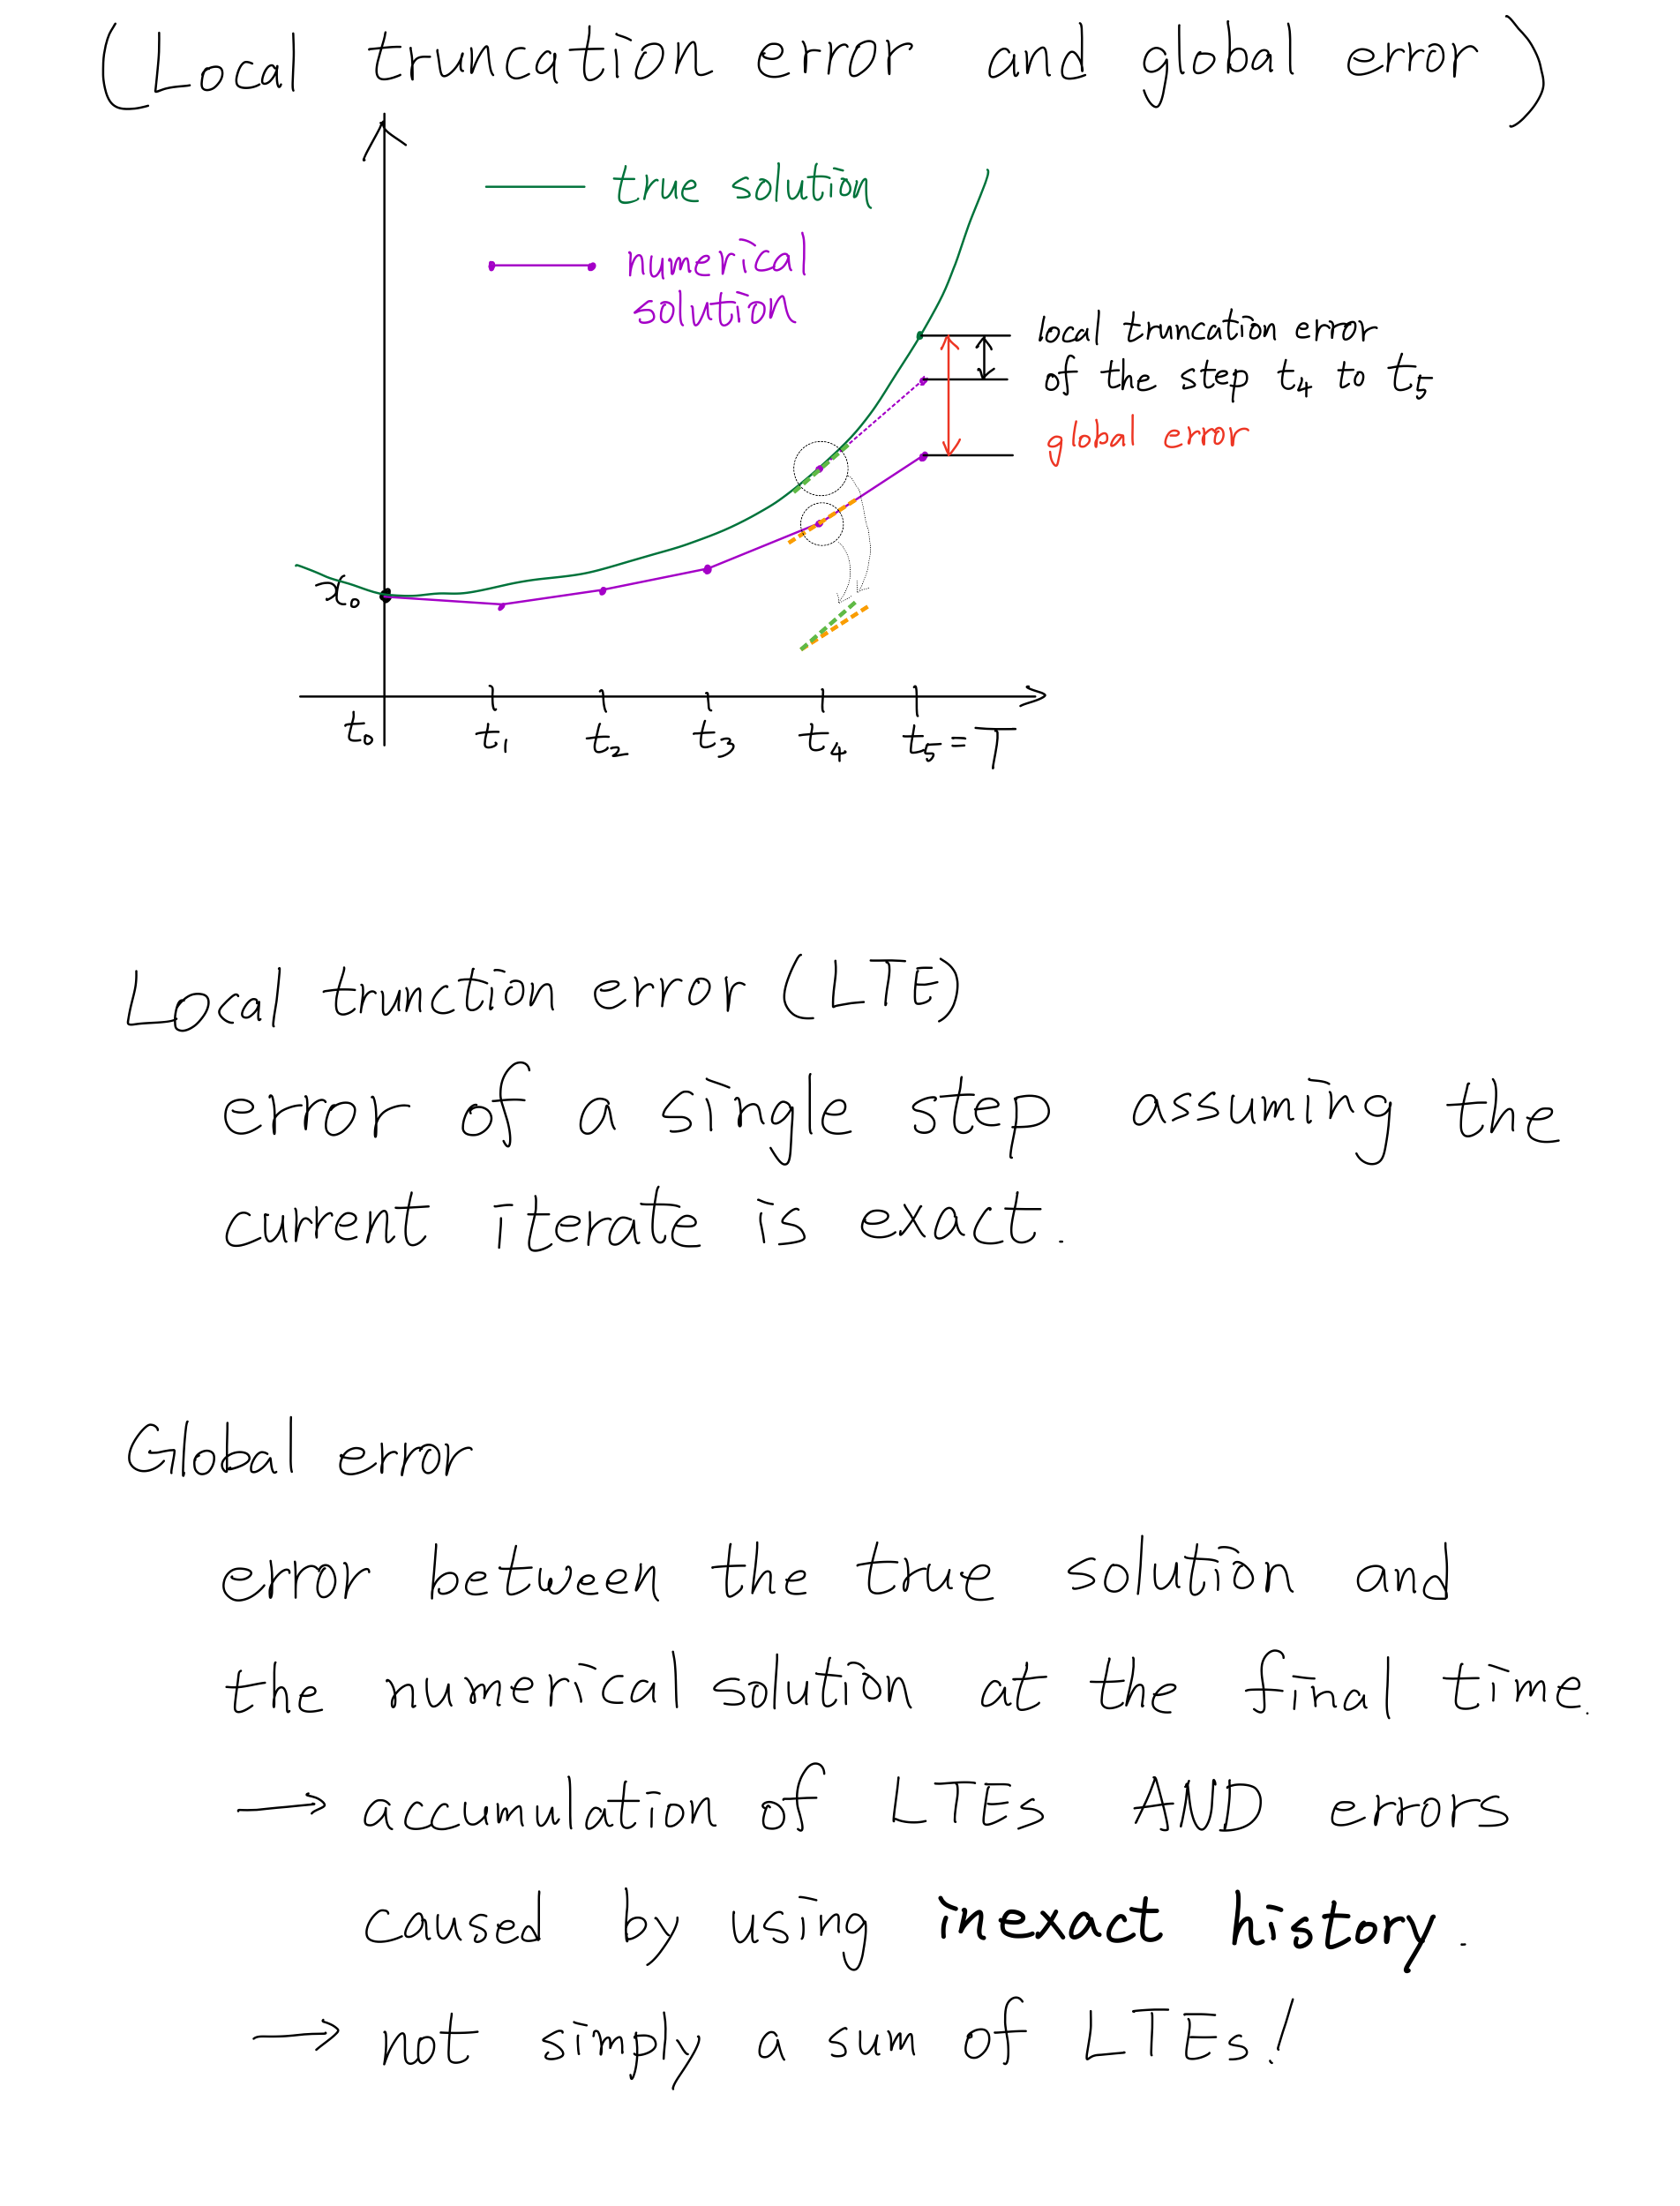 (Local truncation error and global error)
true solution
numerical
solution
local truncation error
of the step t₄ to t₅
global error
x₀
t₀ t₁ t₂ t₃ t₄ t₅ = T
Local trunction error (LTE)
error of a single step assuming the
current iterate is exact.
Global error
error between the true solution and
the numerical solution at the final time.
→ accumulation of LTEs AND errors
caused by using inexact history.
→ not simply a sum of LTEs!